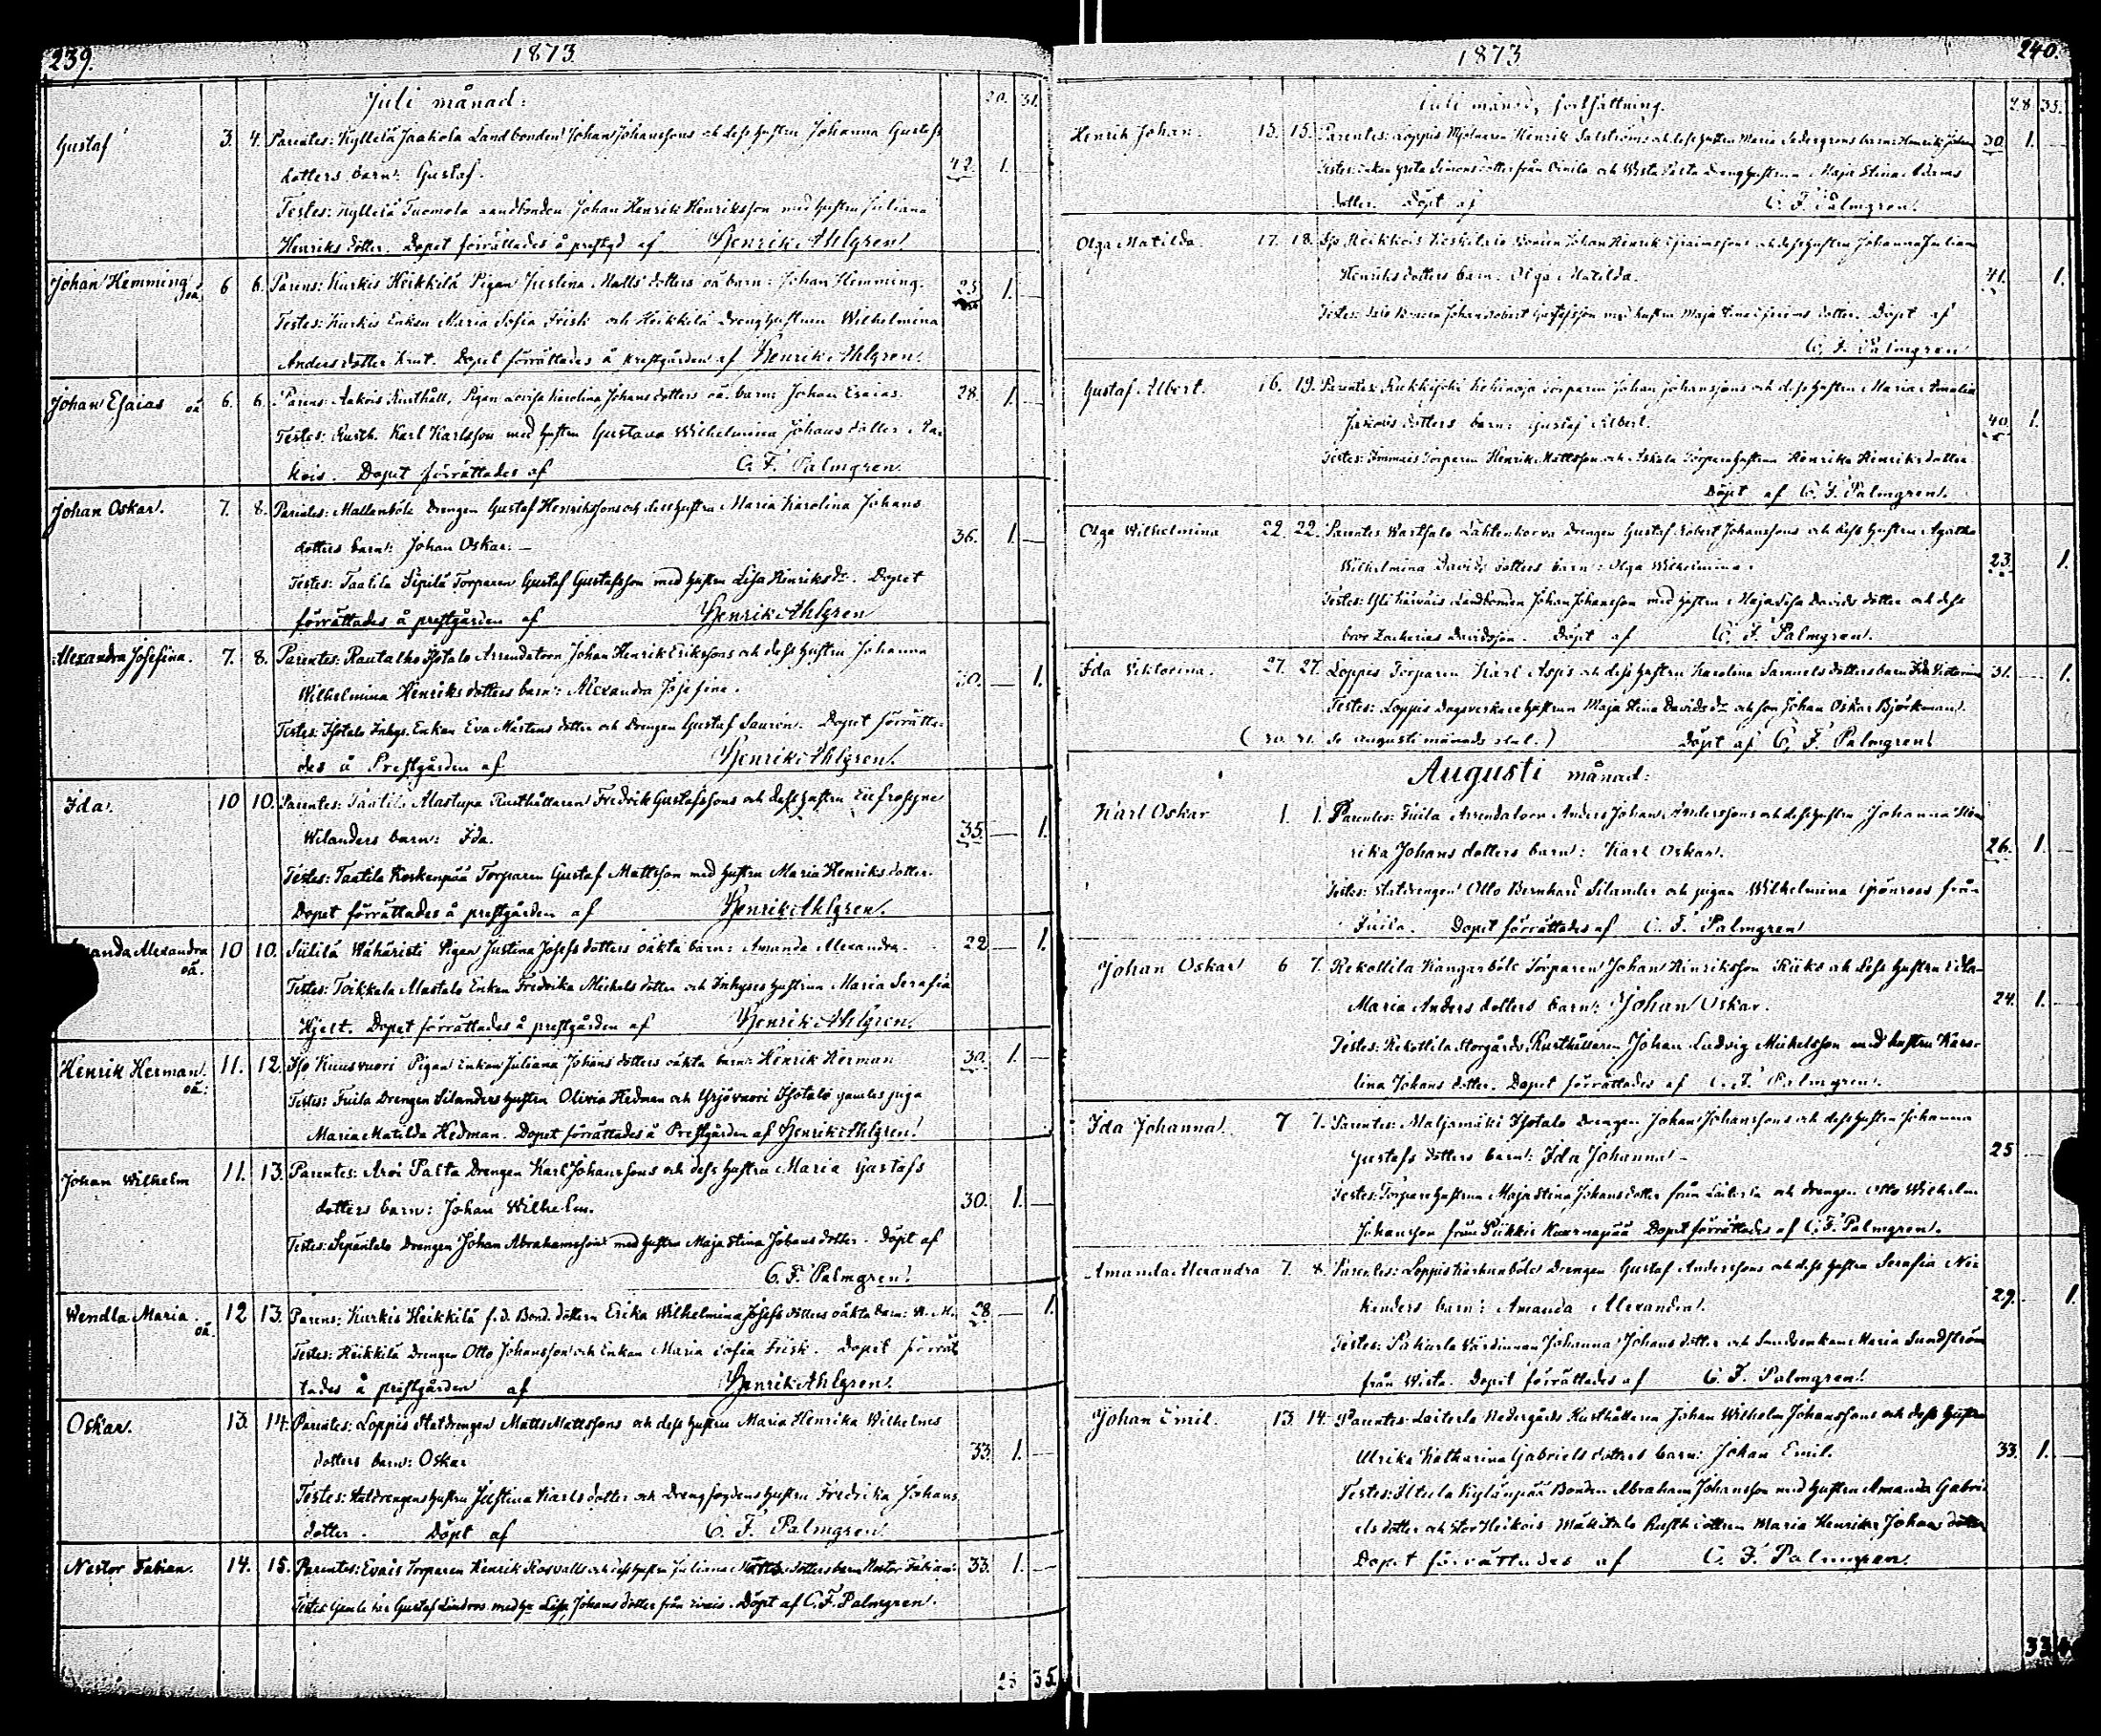 239. 1873
Juli månad: 20. 31.
Gustaf 3. 4. Parentes: Kyllelä Jaakola Landbonden Johan Johanssons och dess hustru Johanna Gustafs
dotters barn: Gustaf. 42. 1. —
Testes: Kyllelä Tuomola Landbonden Johan Henrik Henriksson med hustru Juliana
Henriks dotter. Dopet förrättades å prestgd af Henrik Ahlgren.
Johan Hemming oä. 6 6. Parens: Kurkis Heikkilä Pigan Justina Matts dotters oä barn: Johan Hemming. 25 1.
Testes: Kurkis Enkan Maria Sofia Frisk och Heikkilä Dreng hustrun Wilhelmina
Anders dotter Krut. Dopet förrättades å prestgården af Henrik Ahlgren.
Johan Esaias oä 6. 6. Parens: Aakois Rusthåll, Pigan Lovisa Karolina Johans dotters oä. barn: Johan Esaias. 28. 1. —
Testes: Rusth. Karl Karlsson med hustru Gustava Wilhelmina Johans dotter Aa-
kois. Dopet förrättades af C. F. Palmgren.
Johan Oskar. 7. 8. Parentes: Mallenböle Drengen Gustaf Henrikssons och dess hustru Maria Karolina Johans
dotters barn: Johan Oskar. — 36. 1. —
Testes: Taatila Sipilä Torparen Gustaf Gustafsson med hustru Lisa Henriks dr. Dopet
förrättades å prestgården af Henrik Ahlgren
Alexandra Josefina. 7. 8. Parentes: Rautalho Isotalo Arrendatorn Johan Henrik Erikssons och dess hustru Johanna
Wilhelmina Henriks dotters barn: Alexandra Josefina. 30. — 1.
Testes: Isotalo Inhys. Enkan Eva Mårtens dotter och Drengen Gustaf Saurén. Dopet förrätta-
des å Prestgården af Henrik Ahlgren.
Ida. 10 10. Parentes: Taatila Alastupa Rusthållaren Fredrik Gustafssons och dess hustru Eufrosyne
Wilanders barn: Ida. 35. — 1.
Testes: Taatila Koskenpää Torparen Gustaf Mattsson med hustru Maria Henriks dotter.
Dopet förrättades å prestgården af Henrik Ahlgren.
anda Alexandra oä. 10 10. Siitilä Wähäristi Pigan Justina Josefs dotters oäkta barn: Amanda Alexandra. 22 — 1.
Testes: Toikkala Alastalo Enkan Fredrika Michels dotter och Inhyses hustrun Maria Serafia
Hjelt. Dopet förrättades å prestgården af Henrik Ahlgren.
Henrik Herman. oä. 11. 12. Iso Kuusvuori Pigan Enkan Juliana Johans dotters oäkta barn: Henrik Herman 30. 1. —
Testes: Fuila Drengen Silanders hustru Olivia Hedman och Yrjövuori Isotalo gamles piga
Maria Matilda Hedman. Dopet förrättades å Prestgården af Henrik Ahlgren.
Johan Wilhelm 11. 13. Parentes: Arvi Palta Drengen Karl Johanssons och dess hustru Maria Gustafs
dotters barn: Johan Wilhelm. 30. 1. —
Testes: Sepäntalo Drengen Johan Abrahamsson med hustru Maja Stina Johans dotter. Döpt af
C. F. Palmgren.
Wendla Maria. oä. 12 13. Parens: Kurkis Heikkilä f.d. Bond. dottern Erika Wilhelmina Josefs dotters oäkta barn: W. M. 28. — 1.
Testes: Heikkilä Drengen Otto Johansson och Enkan Maria Sofia Frisk. Dopet förrät
tades å prestgården af Henrik Ahlgren.
Oskar. 13. 14. Parentes: Loppis Statdrengen Matts Mattssons och dess hustru Maria Henrika Wilhelms
dotters barn: Oskar 33. 1. —
Testes: Statdrengens hustru Justina Karls dotter och Drengfogdens hustru Fredrika Johans
dotter. Döpt af C. F. Palmgren
Nestor Fabian. 14. 15. Parentes: Evais Torparen Henrik Rosvalls och dess hustru Juliana Matts dotters barn Nestor Fabian. 33. 1. —
Testes: Gustaf Lindroos med Johans dotter från. Döpt af C. F. Palmgren.
28 35
1873 240.
Juli månad, fortsättning. 28. 35.
Henrik Johan. 15. 15. Parentes: Loppis Mjölnaren Henrik Salströms och dess hustru Maria Sedergrens barn: Henrik Johan 30. 1. —
Testes: Enkan Greta Simons dotter från och Wista Dreng hustrun Maja Stina Adams
dotter. Döpt af C. F. Palmgren.
Olga Matilda 17. 18. Johan Henrik och dess hustru Johanna Juliana
Henriks dotters barn: Olga Matilda. 41. 1.
Testes: Johan Robert Gustafsson med hustru Maja Stina dotter. Döpt af
C. F. Palmgren
Gustaf Albert. 16. 19. Parentes: Torparen Johan Johanssons och dess hustru Maria Amalia
dotters barn: Gustaf Albert. 40. 1.
Testes: Torparen Henrik Mattsson och Torpare hustrun Henrika Henriks dotter.
Döpt af C. F. Palmgren.
Olga Wilhelmina 22. 22. Parentes Warssalo Lähtenkorva Drengen Gustaf Robert Johanssons och dess hustru Agatha
Wilhelmina Davids dotters barn: Olga Wilhelmina. 23. 1.
Testes: Landbonden Johan Johansson med hustru Maja Lisa Davids dotter och dess
bror Zacharias Davidsson. Döpt af C. F. Palmgren.
Ida Viktorina. 27. 27. Loppis Torparen Karl Asps och dess hustru Karolina Samuels dotters barn Ida Viktorina 31. 1.
Testes: Loppis Dagsverkare hustrun Maja Stina Davids dr och son Johan Oskar Björkman.
(30. 31. Se Augusti månads slut.) Döpt af C. F. Palmgren.
Augusti månad:
Karl Oskar 1. 1. Parentes: Fuila Arrendatorn Anders Johan Anderssons och dess hustru Johanna Hen
rika Johans dotters barn: Karl Oskar. 26. 1. —
Testes: Statdrengen Otto Bernhard Silander och pigan Wilhelmina Grönroos från
Fuila. Dopet förrättades af C. F. Palmgren
Johan Oskar 6 7. Rekottila Kangarböle Torparen Johan Henriksson Riiks och dess hustru Ulla
Maria Anders dotters barn: Johan Oskar. 24. 1. —
Testes: Rekottila Storgårds Rusthållaren Johan Ludvig Michelsson med hustru Karo-
lina Johans dotter. Dopet förrättades af C. F. Palmgren.
Ida Johanna 7 7. Parentes: Maljamäki Isotalo Drengen Johan Johanssons och dess hustru Johanna
Gustafs dotters barn: Ida Johanna. — 25 —
Testes: Torpare hustrun Maja Stina Johans dotter från Laiterla och drengen Otto Wilhelm
Johansson från Piikkis Kuurnapää Dopet förrättades af C. F. Palmgren.
Amanda Alexandra 7. 8. Parentes: Loppis Karhunböle Drengen Gustaf Anderssons och dess hustru Serafia Nie-
landers barn: Amanda Alexandra. 29. 1.
Testes: Pakurla Värdinnan Johanna Johans dotter och Smedsenkan Maria Sundström
från Wista. Dopet förrättades af C. F. Palmgren.
Johan Emil. 13. 14. Parentes: Laiterla Nedergårds Rusthållaren Johan Wilhelm Johanssons och dess hustru
Ulrika Katharina Gabriels dotters barn: Johan Emil. 33. 1. —
Testes: Iltula Kylänpää Bonden Abraham Johansson med hustru Amanda Gabri-
els dotter och Stor Heikois Mäkitalo Rusth. dottren Maria Henrika Johans dotter
Dopet förrättades af C. F. Palmgren.
33